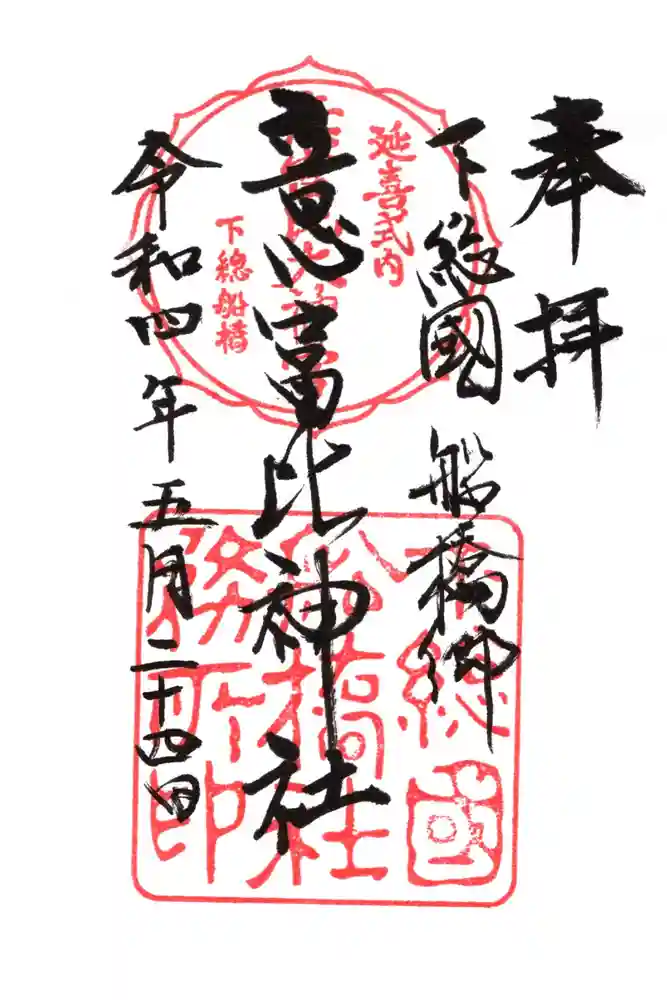 奉拝
下総國船橋郷
意富比神社
令和四年五月二十四日
延喜式内
下総船橋
下總國
船橋社
務所印